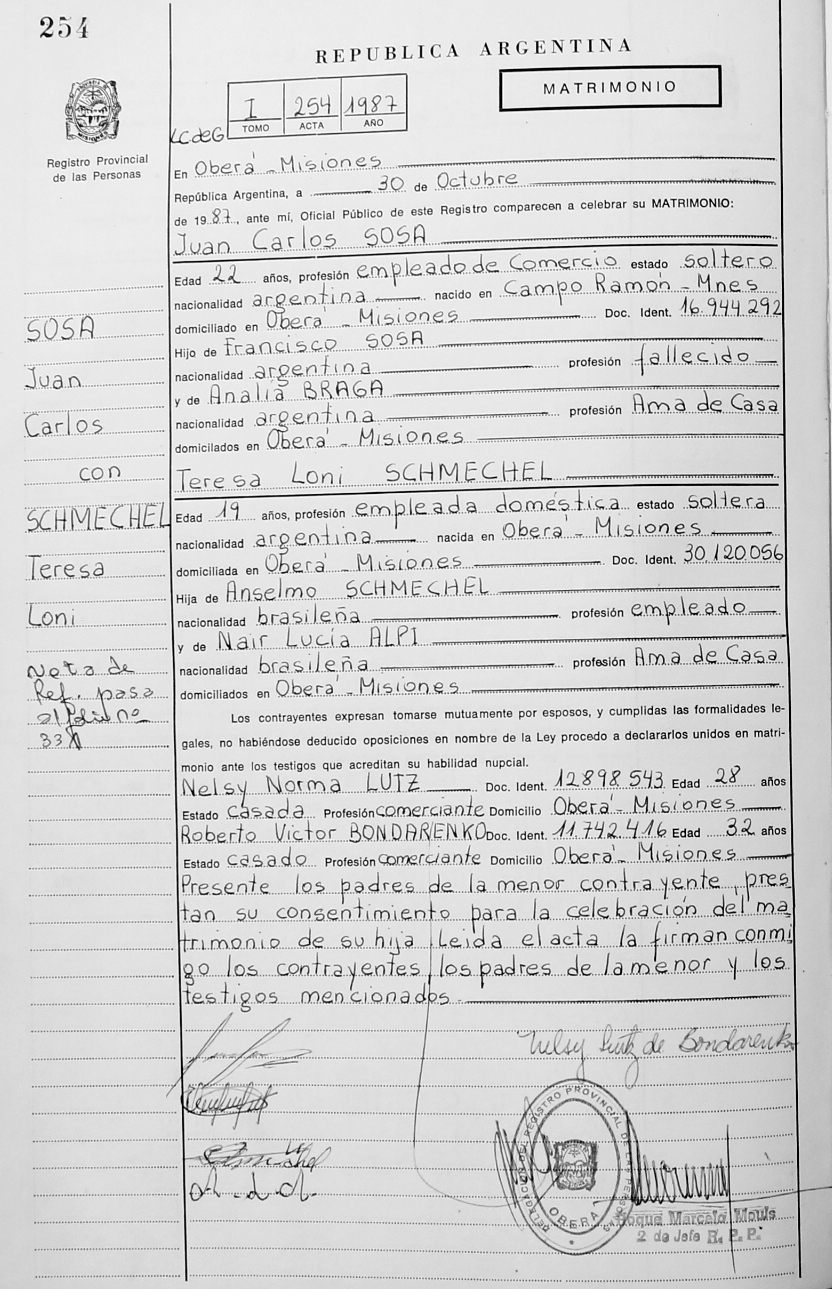 254
REPUBLICA ARGENTINA
MATRIMONIO
I 254 1987
TOMO ACTA AÑO
LCdeG
Registro Provincial
de las Personas
En Oberá - Misiones
República Argentina, a 30 de Octubre
de 1987, ante mí, Oficial Público de este Registro comparecen a celebrar su MATRIMONIO:
Juan Carlos SOSA
Edad 22 años, profesión empleado de Comercio estado soltero
nacionalidad argentina nacido en Campo Ramón - Mnes
domiciliado en Oberá - Misiones Doc. Ident. 16.944.292
Hijo de Francisco SOSA
nacionalidad argentina profesión fallecido
y de Analia BRAGA
nacionalidad argentina profesión Ama de Casa
domicilados en Oberá - Misiones
Teresa Loni SCHMECHEL
Edad 19 años, profesión empleada doméstica estado soltera
nacionalidad argentina nacida en Oberá - Misiones
domiciliada en Oberá - Misiones Doc. Ident. 30.120.056
Hija de Anselmo SCHMECHEL
nacionalidad brasileña profesión empleado
y de Nair Lucía ALPI
nacionalidad brasileña profesión Ama de Casa
domiciliados en Oberá - Misiones
Los contrayentes expresan tomarse mutuamente por esposos, y cumplidas las formalidades le-
gales, no habiéndose deducido oposiciones en nombre de la Ley procedo a declararlos unidos en matri-
monio ante los testigos que acreditan su habilidad nupcial.
Nelsy Norma LUTZ Doc. Ident. 12898543 Edad 28 años
Estado casada Profesión comerciante Domicilio Oberá - Misiones
Roberto Victor BONDARENKO Doc. Ident. 11.742.416 Edad 32 años
Estado casado Profesión comerciante Domicilio Oberá - Misiones
Presente los padres de la menor contrayente, pres
tan su consentimiento para la celebración del ma
trimonio de su hija Leida el acta la firman conmi
go los contrayentes, los padres de la menor y los
testigos mencionados.
SOSA
Juan
Carlos
con
SCHMECHEL
Teresa
Loni
Nota de
Ref. pasa
al folio nº
33
Nelsy Lutz de Bondarenko
DELEGACION DEL REGISTRO PROVINCIAL DE LAS PERSONAS
OBERA
Roque Marcelo Mouls
2 do Jefe R. P. P.